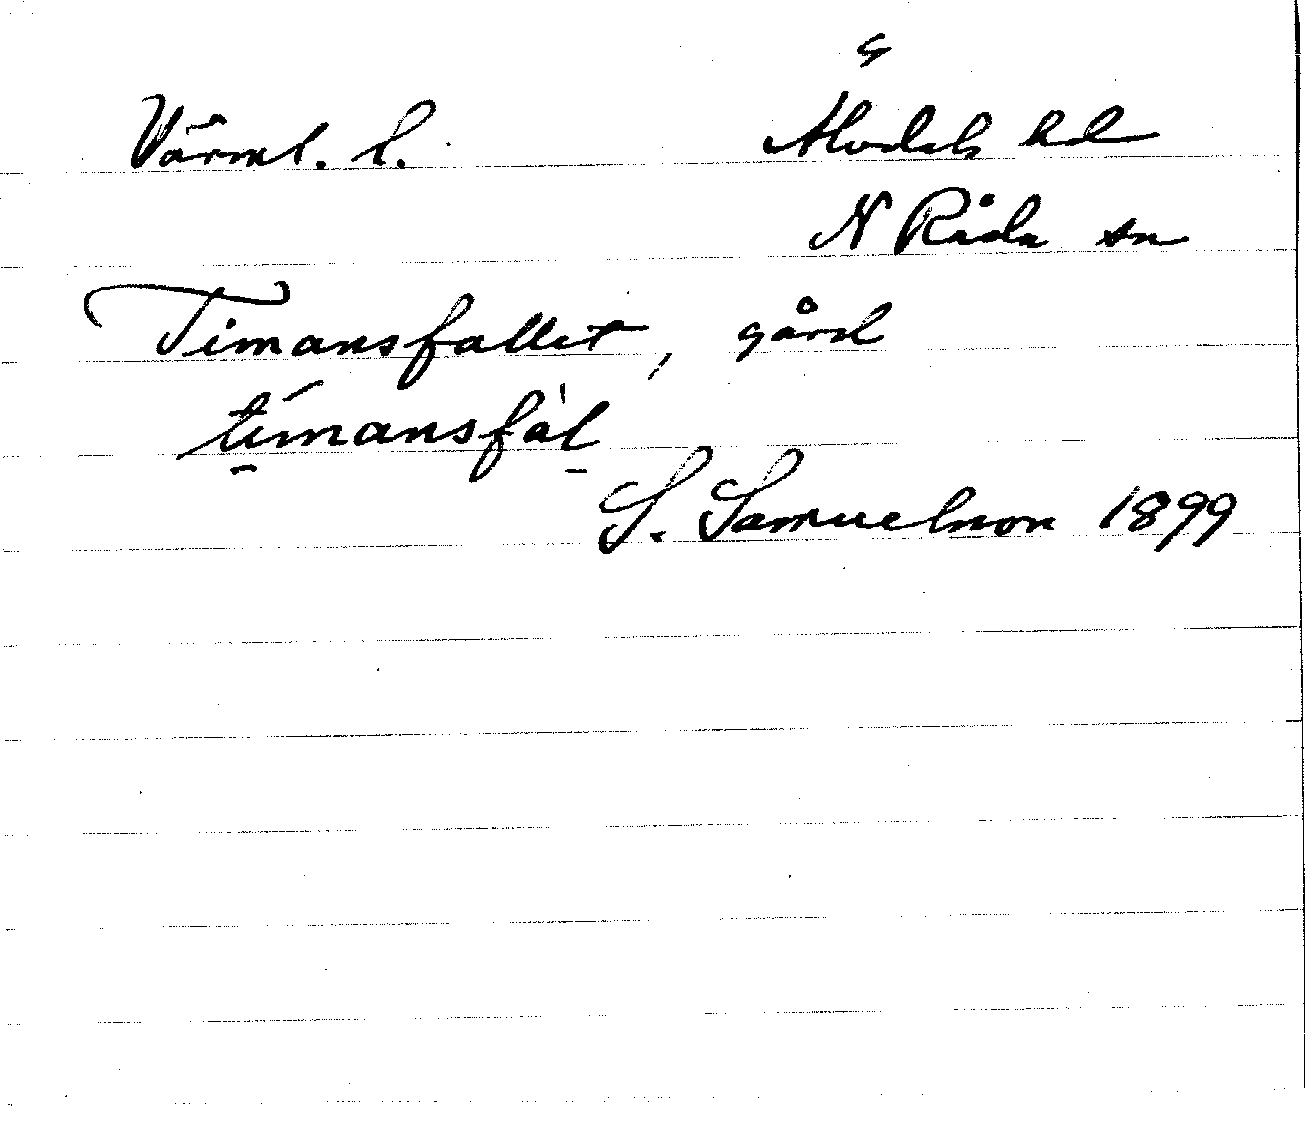 ç
Värml. l. Älvdals hd
N Råda sn
Timansfallet, gård
tímansfàl
S. Samuelsson 1899